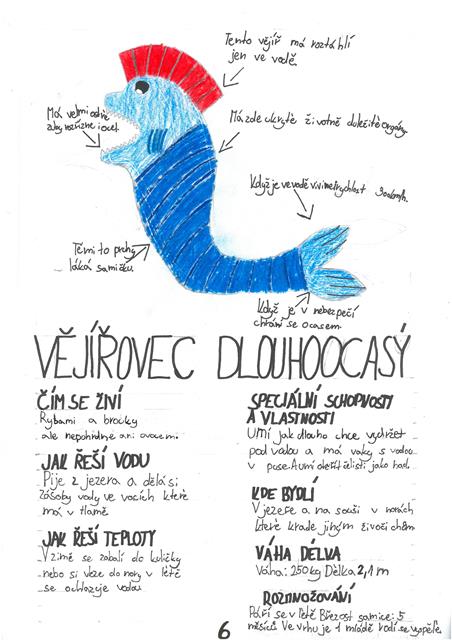 Tento vějíř má roztáhlí
jen ve vodě.
Má velmi ostré
zuby rozřízne i ocel.
Má zde ukryté životně důležité orgány.
Když je ve vodě vivine rychlost 300km/h.
Těmito pruhy
láká samičku.
Když je v nebezpečí
chrání se ocasem.
VĚJÍŘOVEC DLOUHOOCASÝ
ČÍM SE ŽIVÍ
Rybami a brouky
ale nepohrdne ani ovocem.
JAK ŘEŠÍ VODU
Pije z jezera a dělá si
zásoby vody ve vacích které
má v tlamě.
JAK ŘEŠÍ TEPLOTY
V zimě se zabalí do kuličky
nebo si vleze do nory v létě
se ochlazuje vodou.
SPECIÁLNÍ SCHOPNOSTI
A VLASTNOSTI
Umí jak dlouho chce vydržet
pod vodou a má vaky s vodou
v puse. Aumí otevřít čelisti jako had.
KDE BYDLÍ
V jezeře a na souši v norách
které krade jiným živočichům
VÁHA DÉLKA
Váha: 250kg Délka 2,1 m
ROZMNOŽOVÁNÍ
Páří se v létě Březost samice: 5
měsíců Ve vrhu je 1 mládě rodí se vyspělé.
6